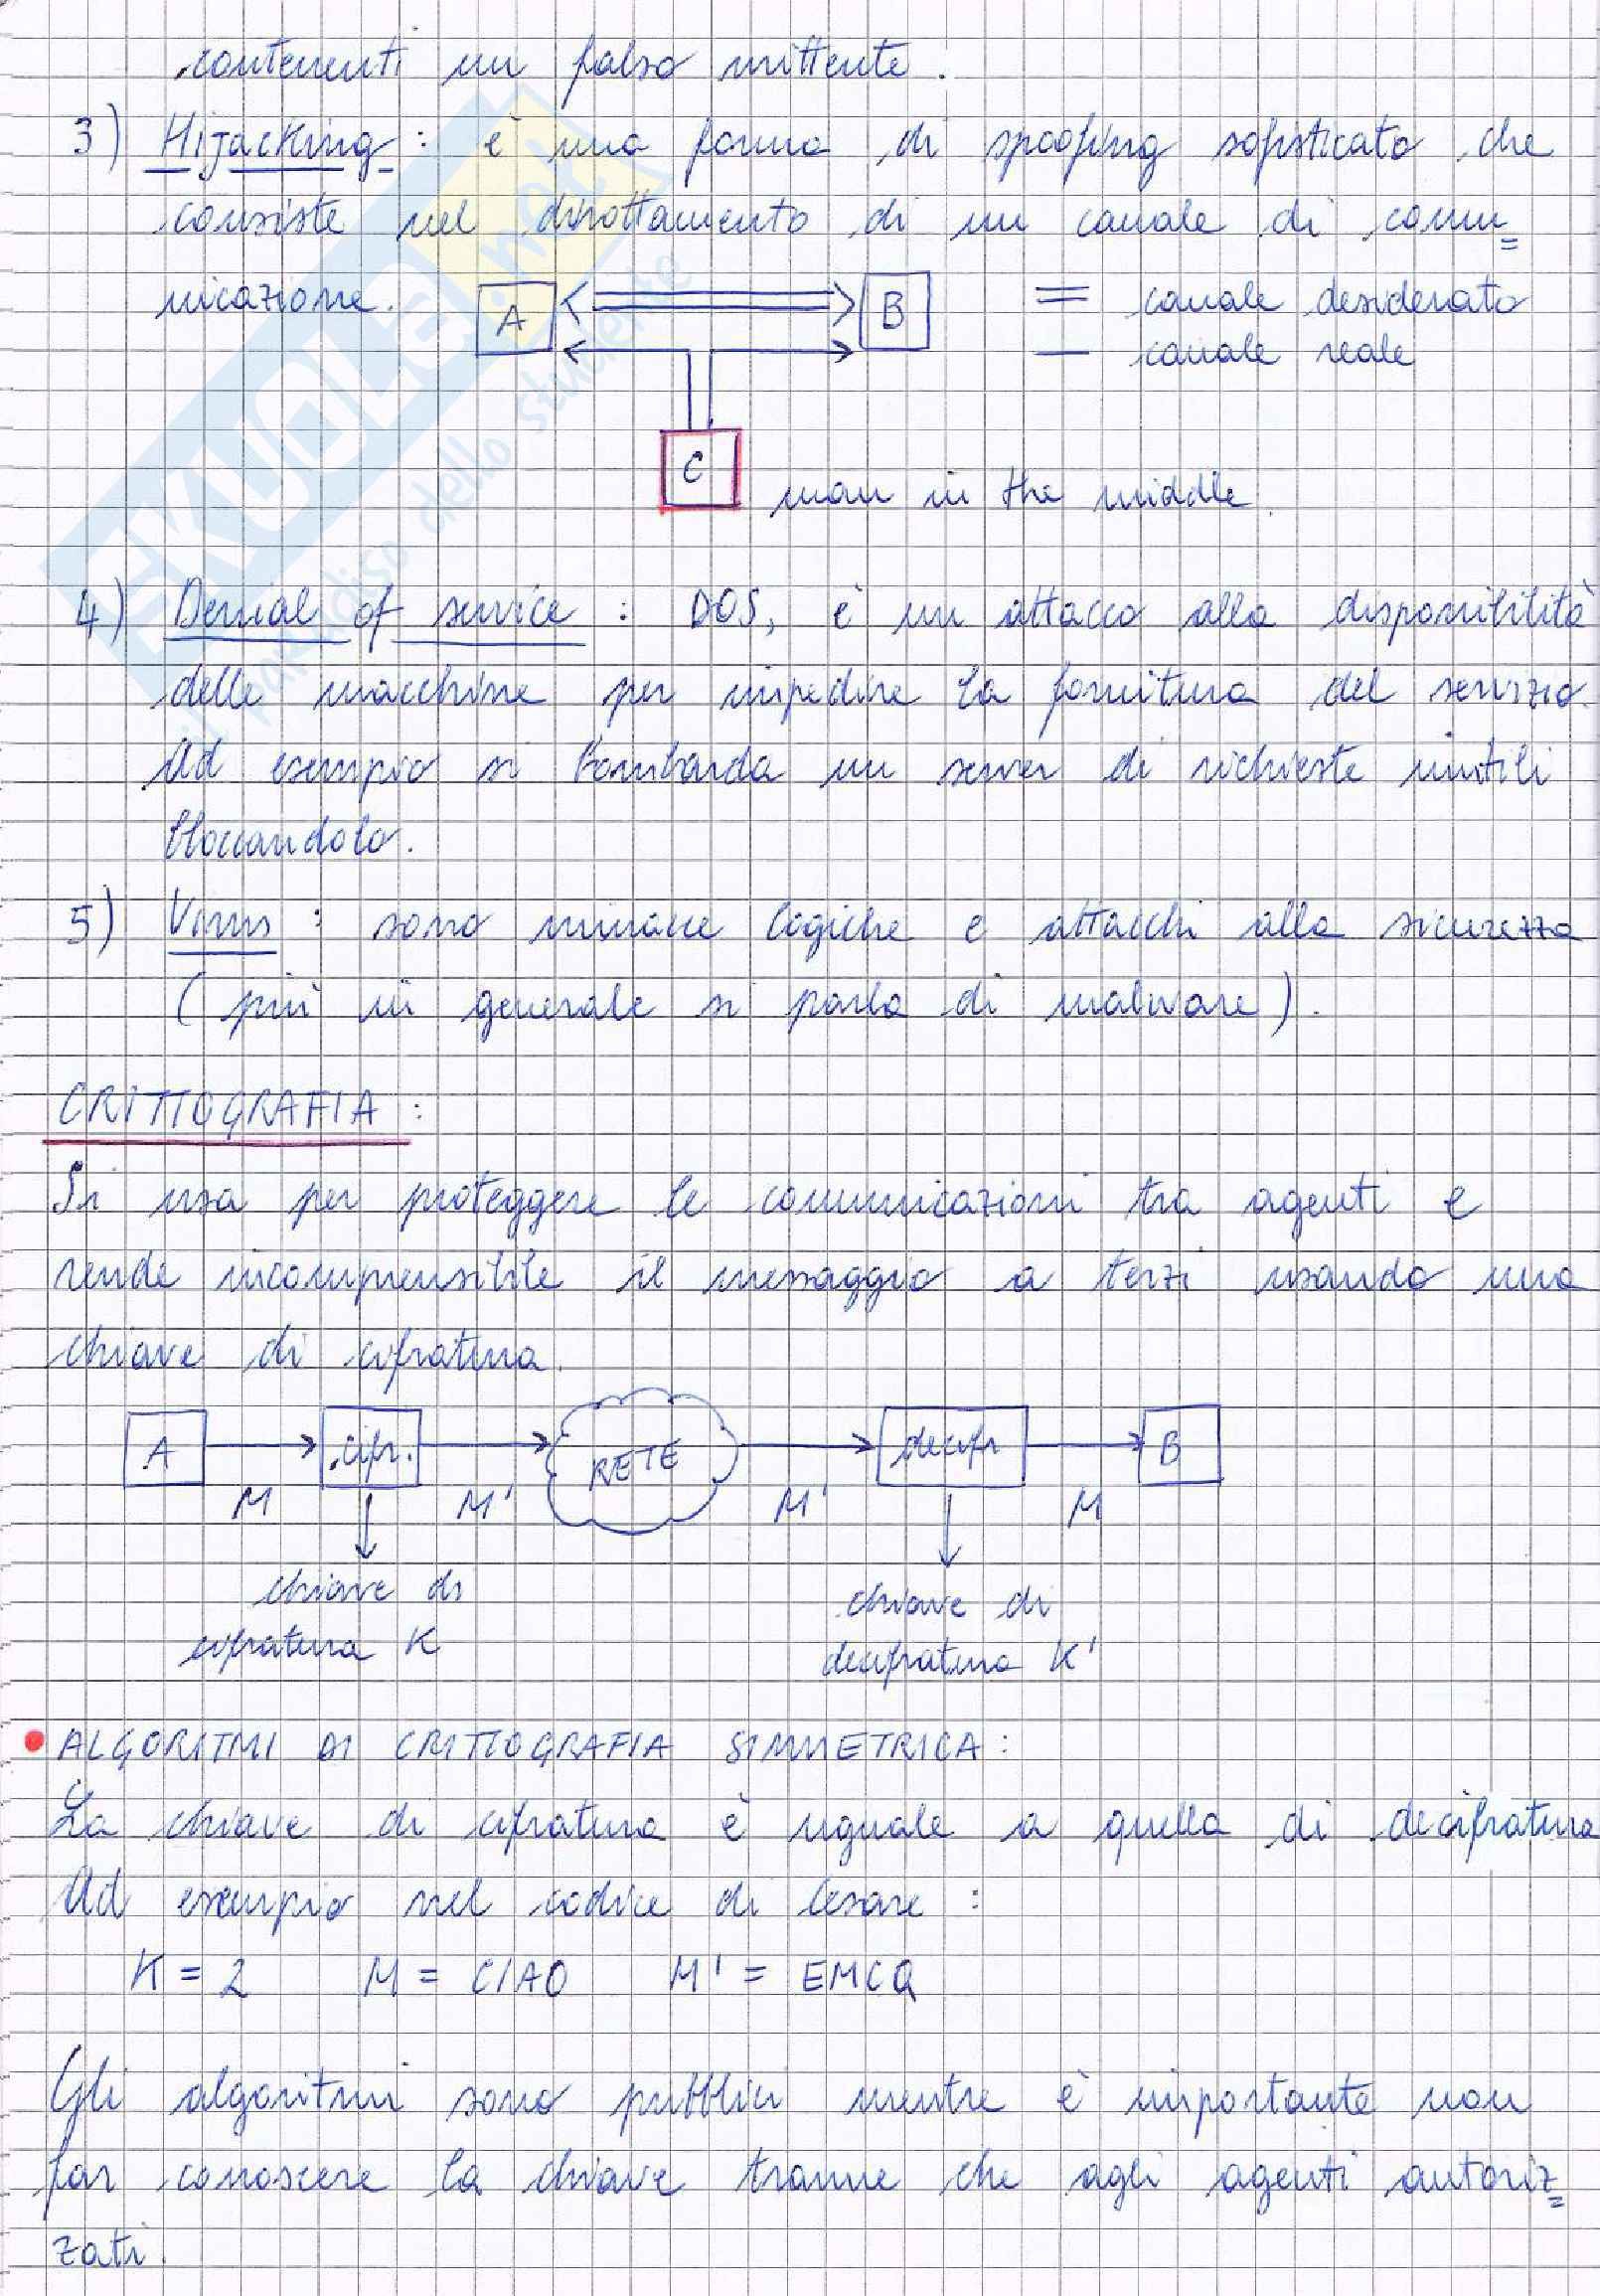 contenenti un falso mittente.
3) Hijacking : è una forma di spoofing sofisticato che
consiste nel dirottamento di un canale di comu=
nicazione.
A B = canale desiderato
— canale reale
C
man in the middle.
4) Denial of service : DOS, è un attacco alla disponibilità
delle macchine per impedire la fornitura del servizio.
Ad esempio si bombarda un server di richieste inutili
bloccandolo.
5) Virus : sono minacce logiche e attacchi alla sicurezza
(più in generale si parla di malware).
CRITTOGRAFIA :
Si usa per proteggere le comunicazioni tra agenti e
rende incomprensibile il messaggio a terzi usando una
chiave di cifratura.
A cifr. RETE decifr B
M M' M' M
chiave di chiave di
cifratura K decifratura K'
ALGORITMI DI CRITTOGRAFIA SIMMETRICA :
La chiave di cifratura è uguale a quella di decifratura
Ad esempio nel codice di Cesare :
K = 2 M = CIAO M' = EMCQ
Gli algoritmi sono pubblici mentre è importante non
far conoscere la chiave tranne che agli agenti autoriz=
zati.
SKUOLA.net
il paradiso dello studente